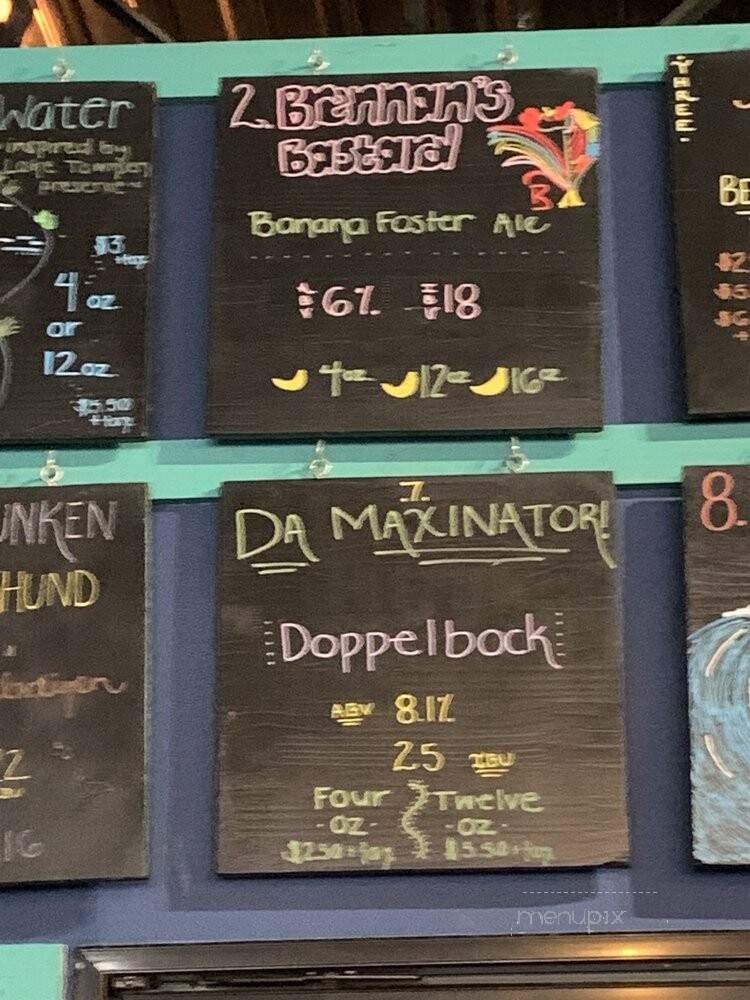 Water
inspired by
$3
+tax
4 oz
or
12 oz
$5.50
+tax
2. Brennan's
Bastard
B
Banana Foster Ale
ABV 6% IBU 18
4oz 12oz 16oz
THREE.
BE
$2
$5
$6
+
UNKEN
HUND
2
16
7.
DA MAXINATOR!
Doppelbock
ABV 8.1%
25 IBU
Four Twelve
-OZ- -OZ-
$2.50+tax $5.50+tax
8.
menupix